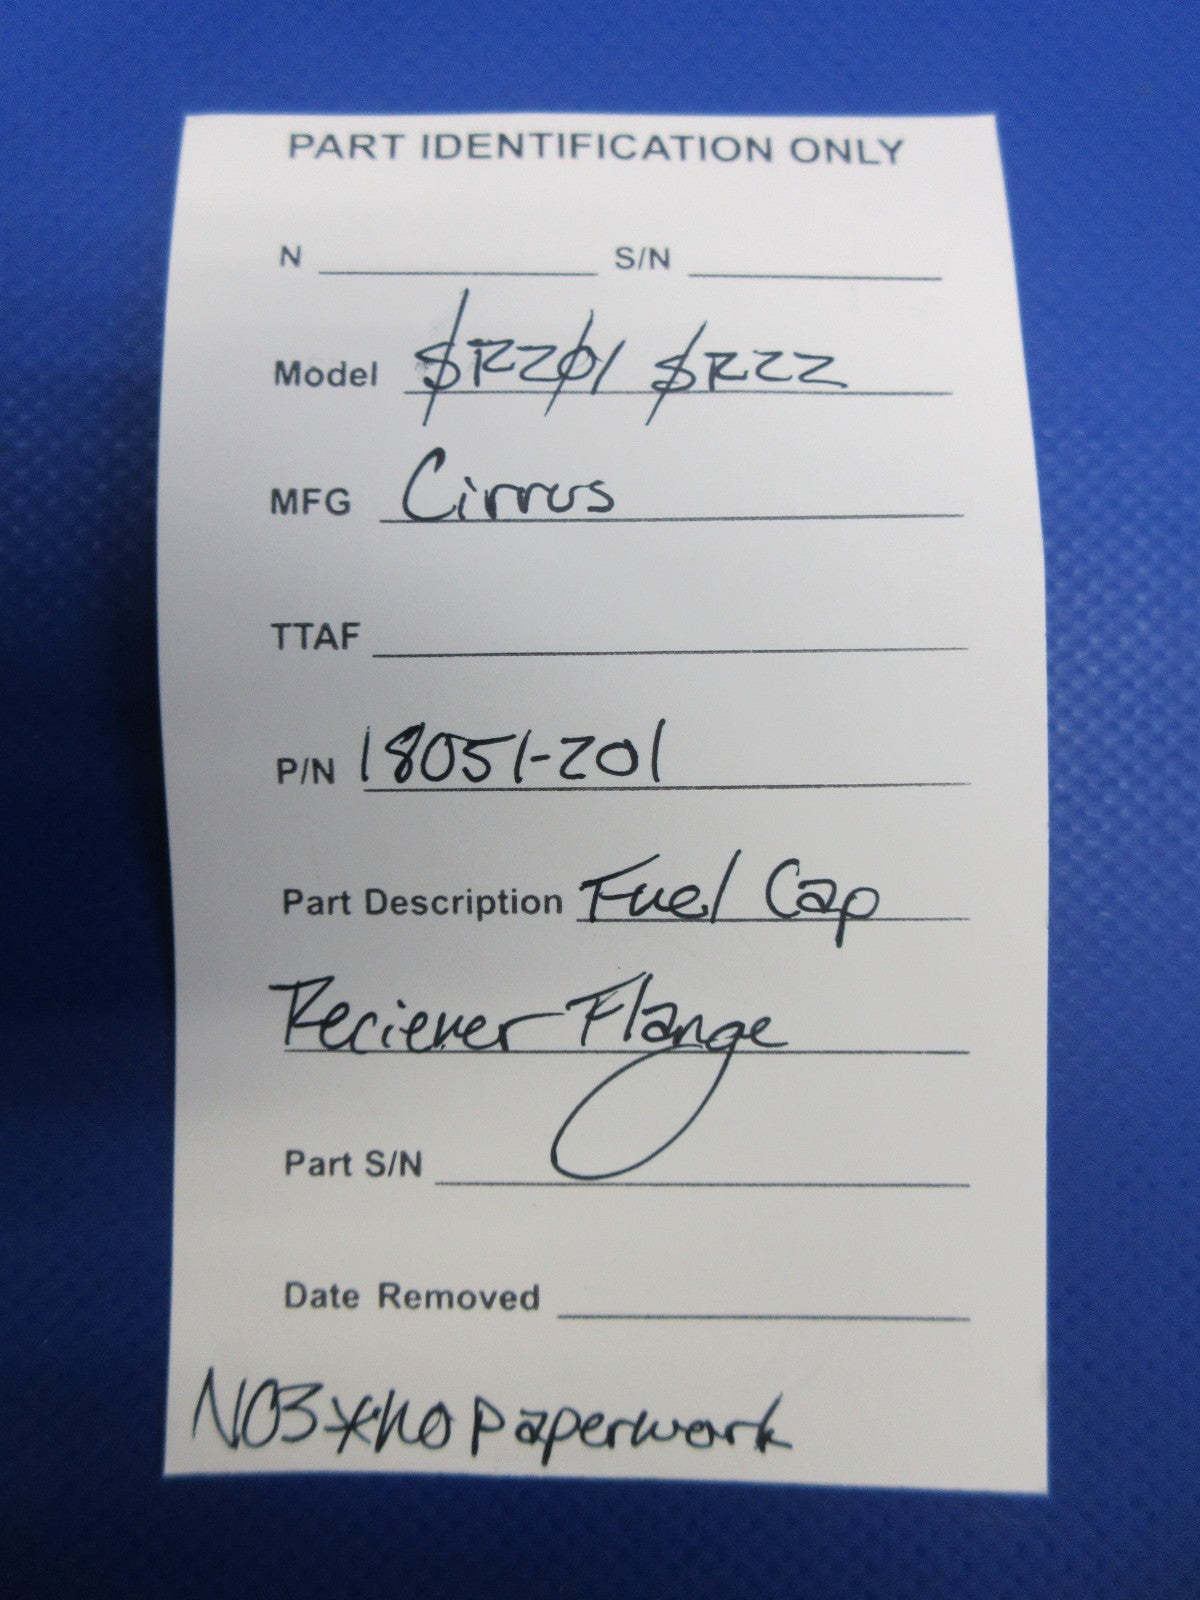 PART IDENTIFICATION ONLY
N S/N
Model SR20/ SR22
MFG Cirrus
TTAF
P/N 18051-201
Part Description Fuel Cap
Reciever Flange
Part S/N
Date Removed
NO3*no paperwork